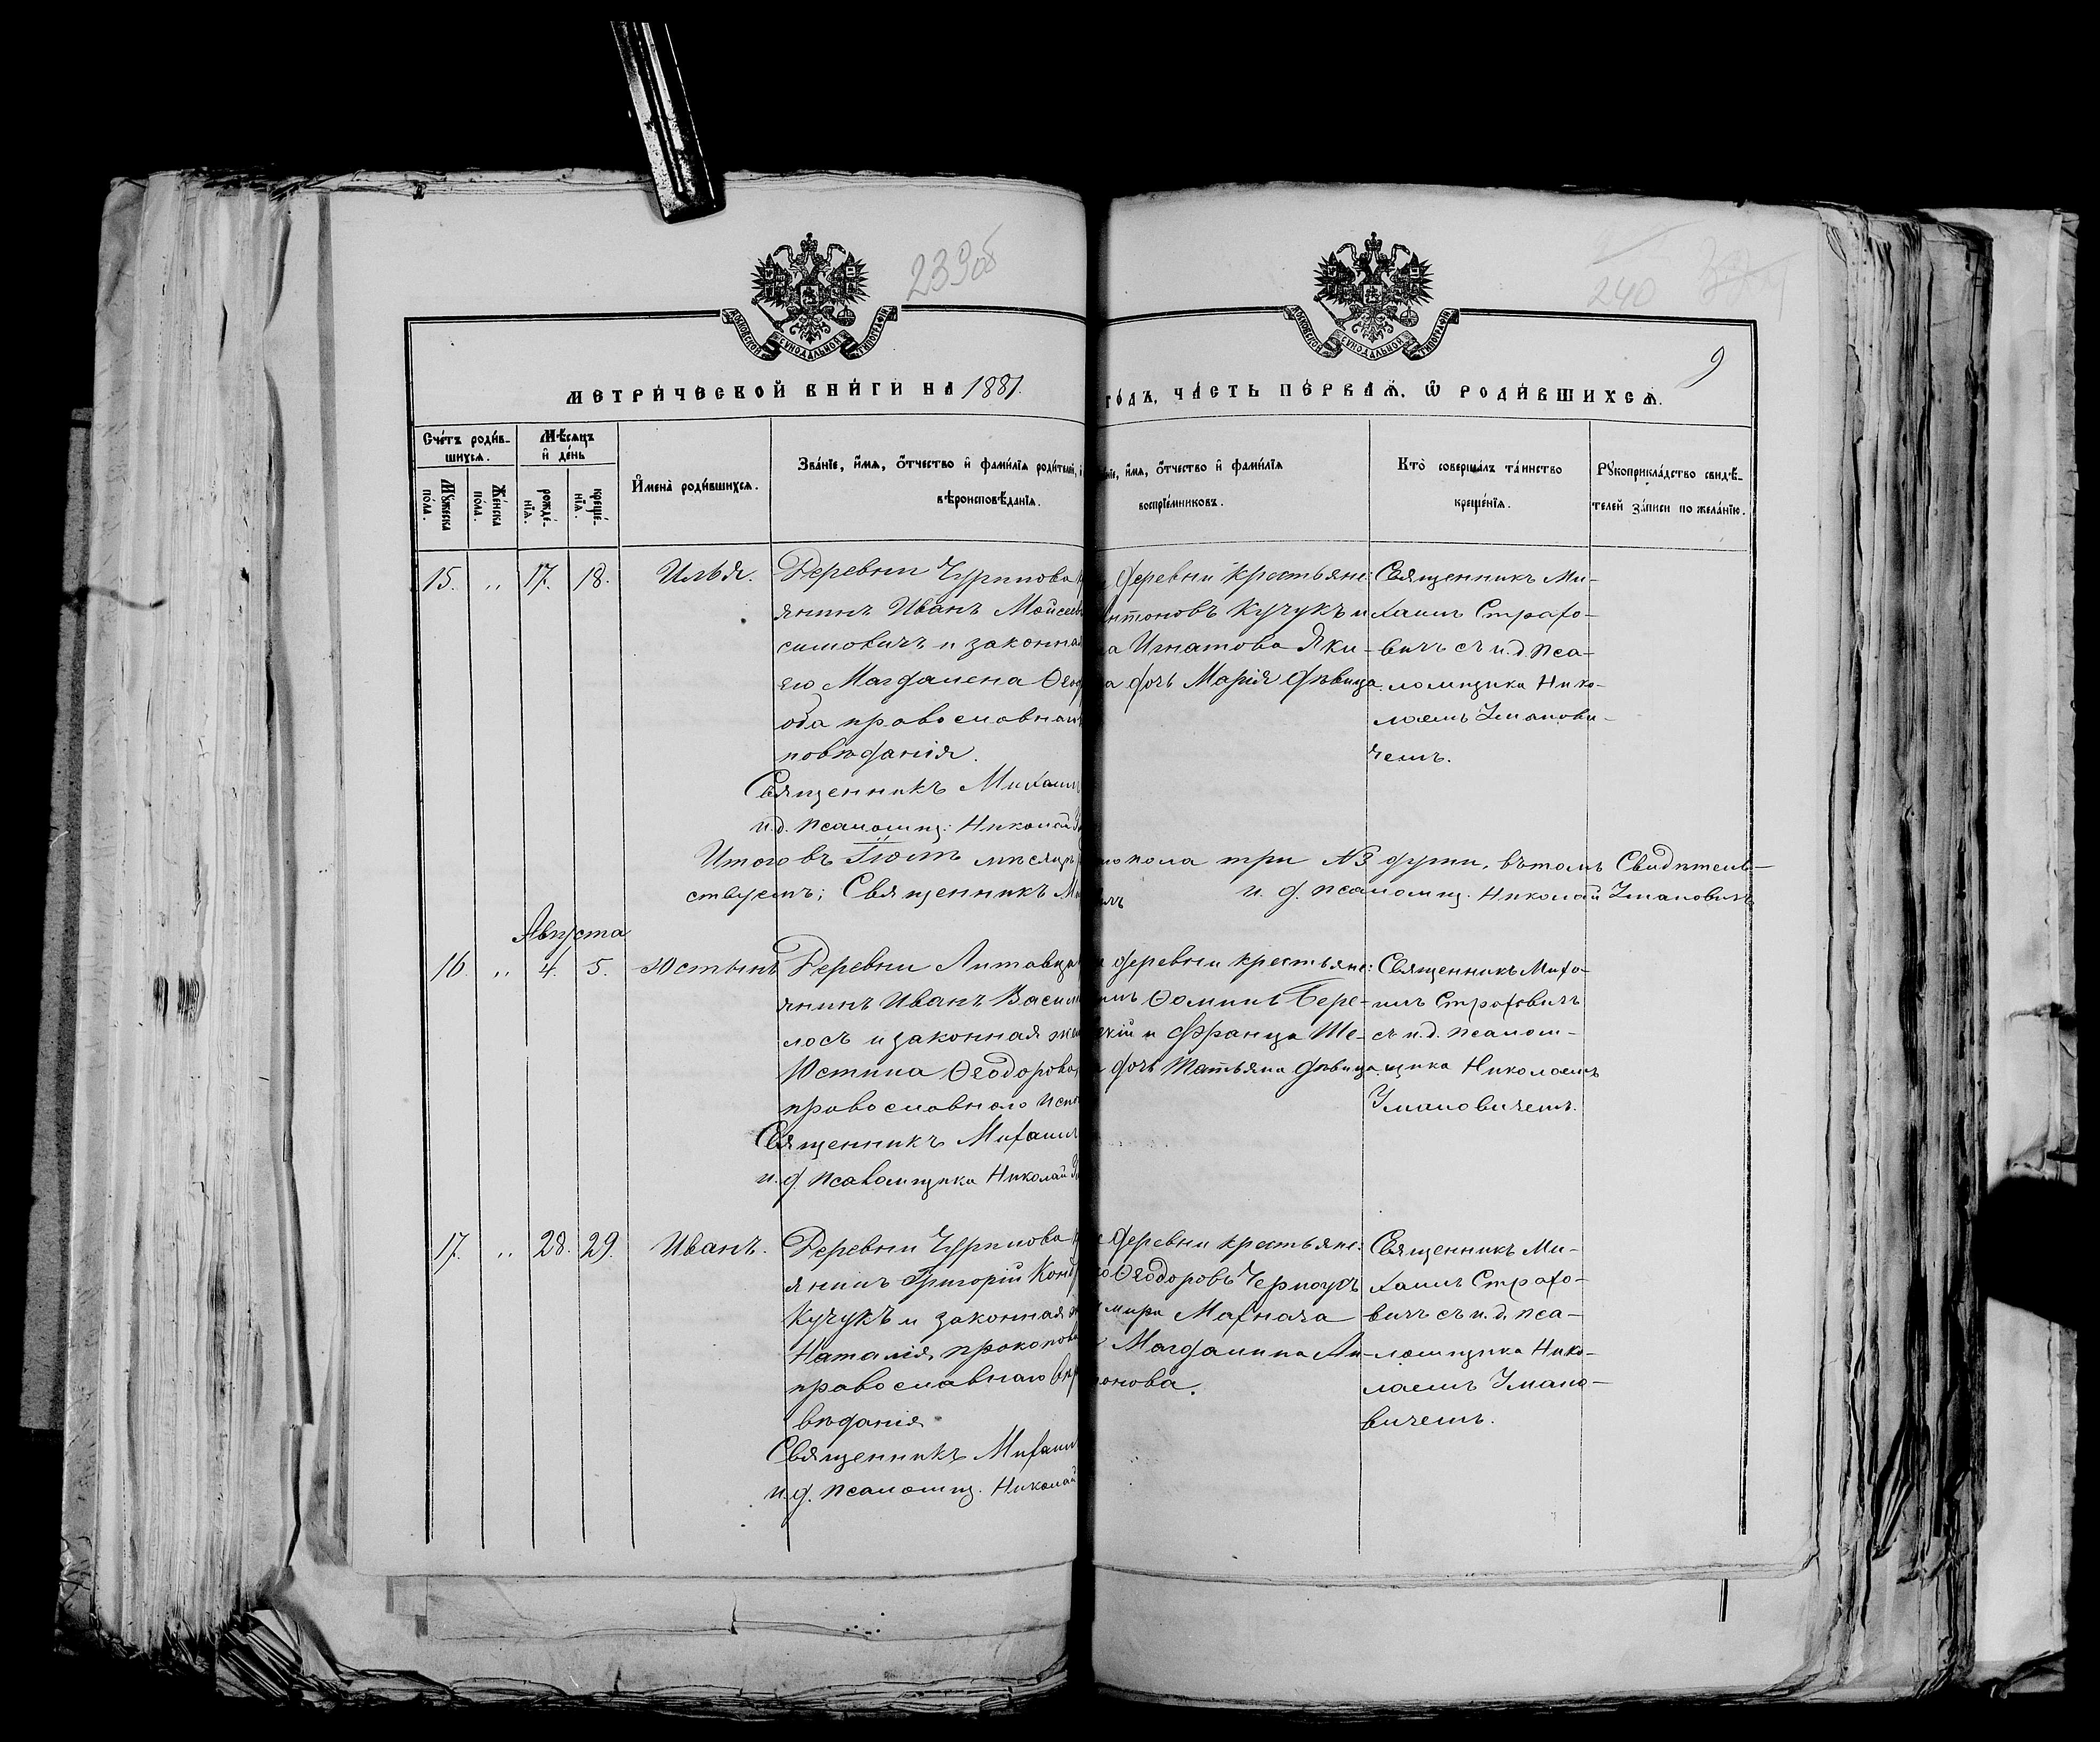 239об
240
9
МОСКОВСКОЙ СѴНОДАЛЬНОЙ ТИПОГРАФІИ
МОСКОВСКОЙ СѴНОДАЛЬНОЙ ТИПОГРАФІИ
МЕТРИ́ЧЕСКОЙ КНИ́ГИ НА 1881.
ГО́ДЪ, ЧА́СТЬ ПЕ́РВАѦ, Ѽ РОДИ́ВШИХСѦ.
Сче́тъ роди́в-
шихсѧ.
Мꙋ́жеска по́ла.
Же́нска по́ла.
Мѣ́сѧцъ
и҆ де́нь
рожде́-
нїѧ.
креще́-
нїѧ.
И҆мена̀ роди́вшихсѧ.
Зва́нїе, и҆́мѧ, ѻ҆́тчество и҆ фами́лїѧ роди́телей,
вѣроисповѣ́данїѧ.
и҆́мѧ, ѻ҆́тчество и҆ фами́лїѧ
воспрїе́мниковъ.
Кто̀ соверша́лъ та́инство
креще́нїѧ.
Рꙋкоприкла́дство свидѣ́-
телей за́писи по жела́нїю.
15. „ 17. 18. Илья.
Деревни Чурилова
янинъ Иванъ Моисеев
симовичъ и законная
его Магдалена Ѳеод
оба православнаго
повѣданія.
Священникъ Михаилъ
и.д. псаломщ: Николай
деревни крестьяне:
Антоновъ Кучукъ и
Игнатова Яки-
дочь Марія дѣвица.
Священникъ Ми-
хаилъ Страхо-
вичъ съ и.д. пса-
ломщика Нико-
лаемъ Уманови-
чемъ.
Итого въ Іюлѣ мѣсяцѣ
пола три №3 души, въ томъ Свидѣтель-
ствуемъ: Священникъ
и. д. псаломщ. Николай Умановичъ
Августа
16. „ 4. 5. Юстинъ
Деревни Литовца
янинъ Иванъ Васил
лосъ и законная же
Юстина Ѳеодорова
православнаго испо
Священникъ Михаилъ
и. д. псаломщика Николай
деревни крестьяне:
Ѳоминъ Бере-
кій и Франца Ше-
дочь Татьяна дѣвица.
Священникъ Миха-
илъ Страховичъ
съ и.д. псалом-
щика Николаемъ
Умановичемъ.
17. „ 28. 29. Иванъ.
Деревни Чурилова
янинъ Григорій Конд
Кучукъ и законная
Наталія Прокопова
православнаго
вѣданія
Священникъ Михаилъ
и.д. псаломщ. Николай
деревни крестьяне:
Ѳеодоровъ Черноукъ
мира Махнача
Магдалина Ан-
онова.
Священникъ Ми-
хаилъ Страхо-
вичъ съ и. д. пса-
ломщика Нико-
лаемъ Умано-
вичемъ.